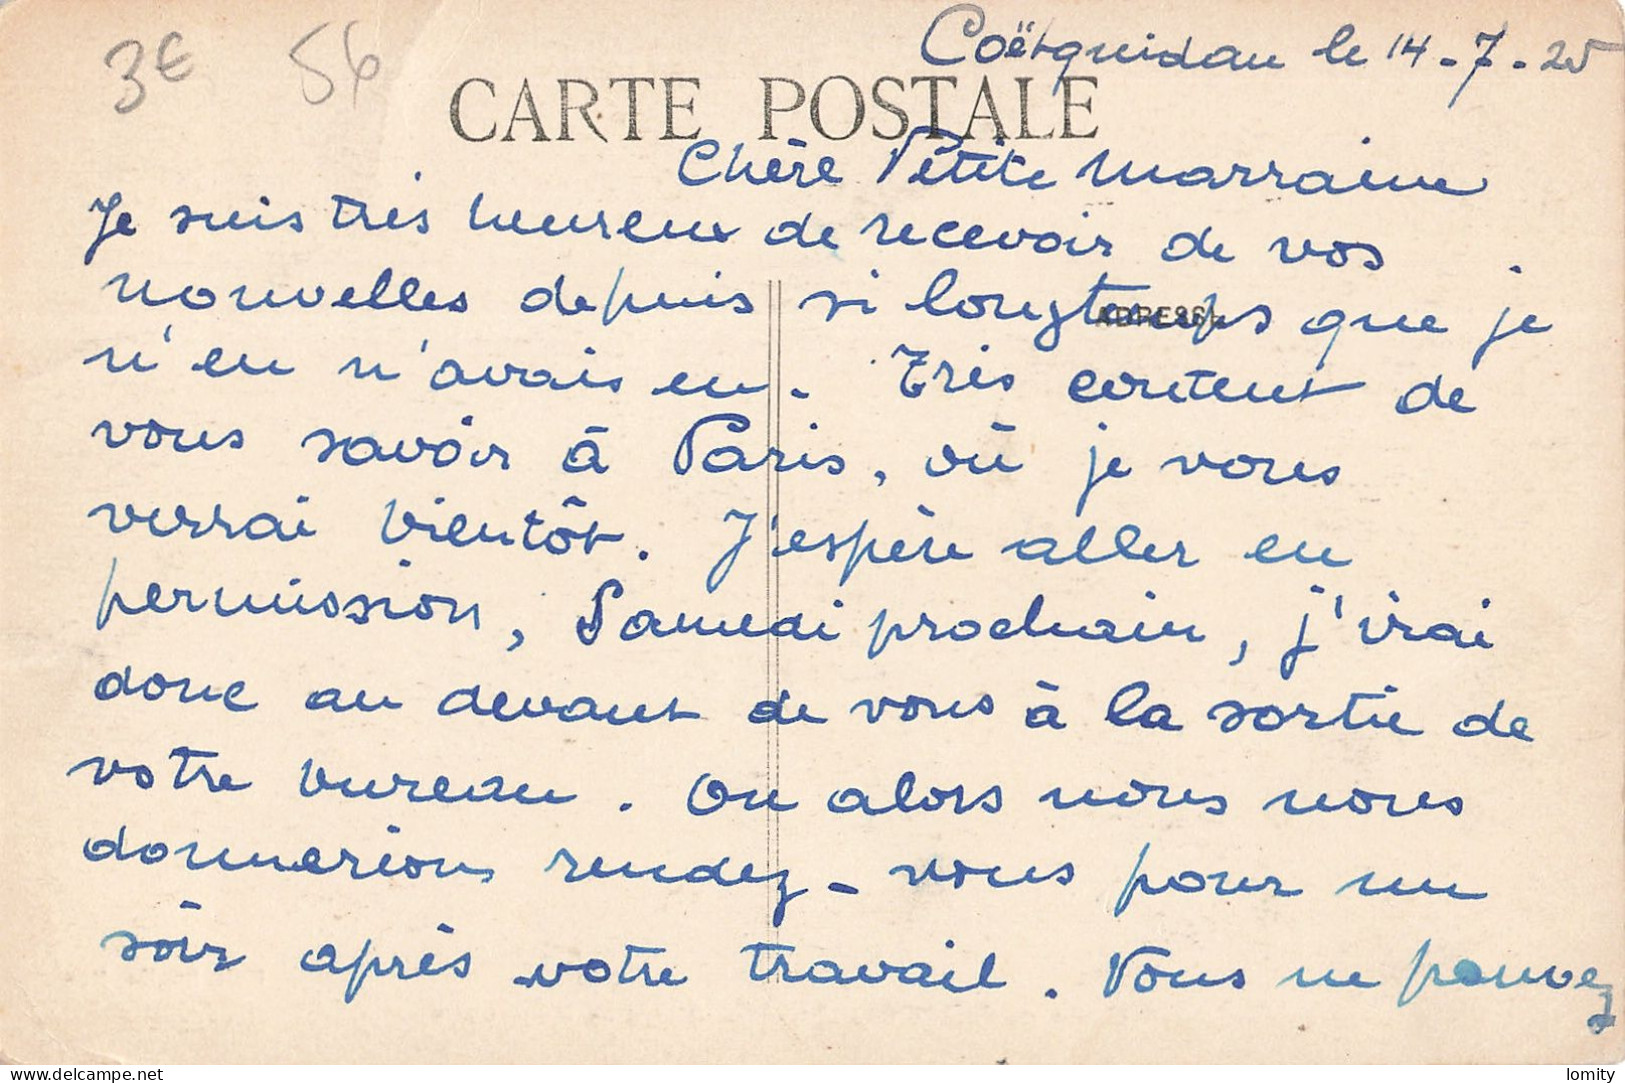 3€ 56
Coëtquidan le 14-7-25
CARTE POSTALE
Chère Petite Marraine
Je suis très heureux de recevoir de vos
nouvelles depuis si longtemps que je
ADRESSE
n'en n'avais eu. Très content de
vous savoir à Paris, où je vous
verrai bientôt. J'espère aller en
permission, Samedi prochain, j'irai
donc au devant de vous à la sortie de
votre bureau. Ou alors nous nous
donnerions rendez-vous pour un
soir après votre travail. Vous ne pouvez
delcampe.net
lomity